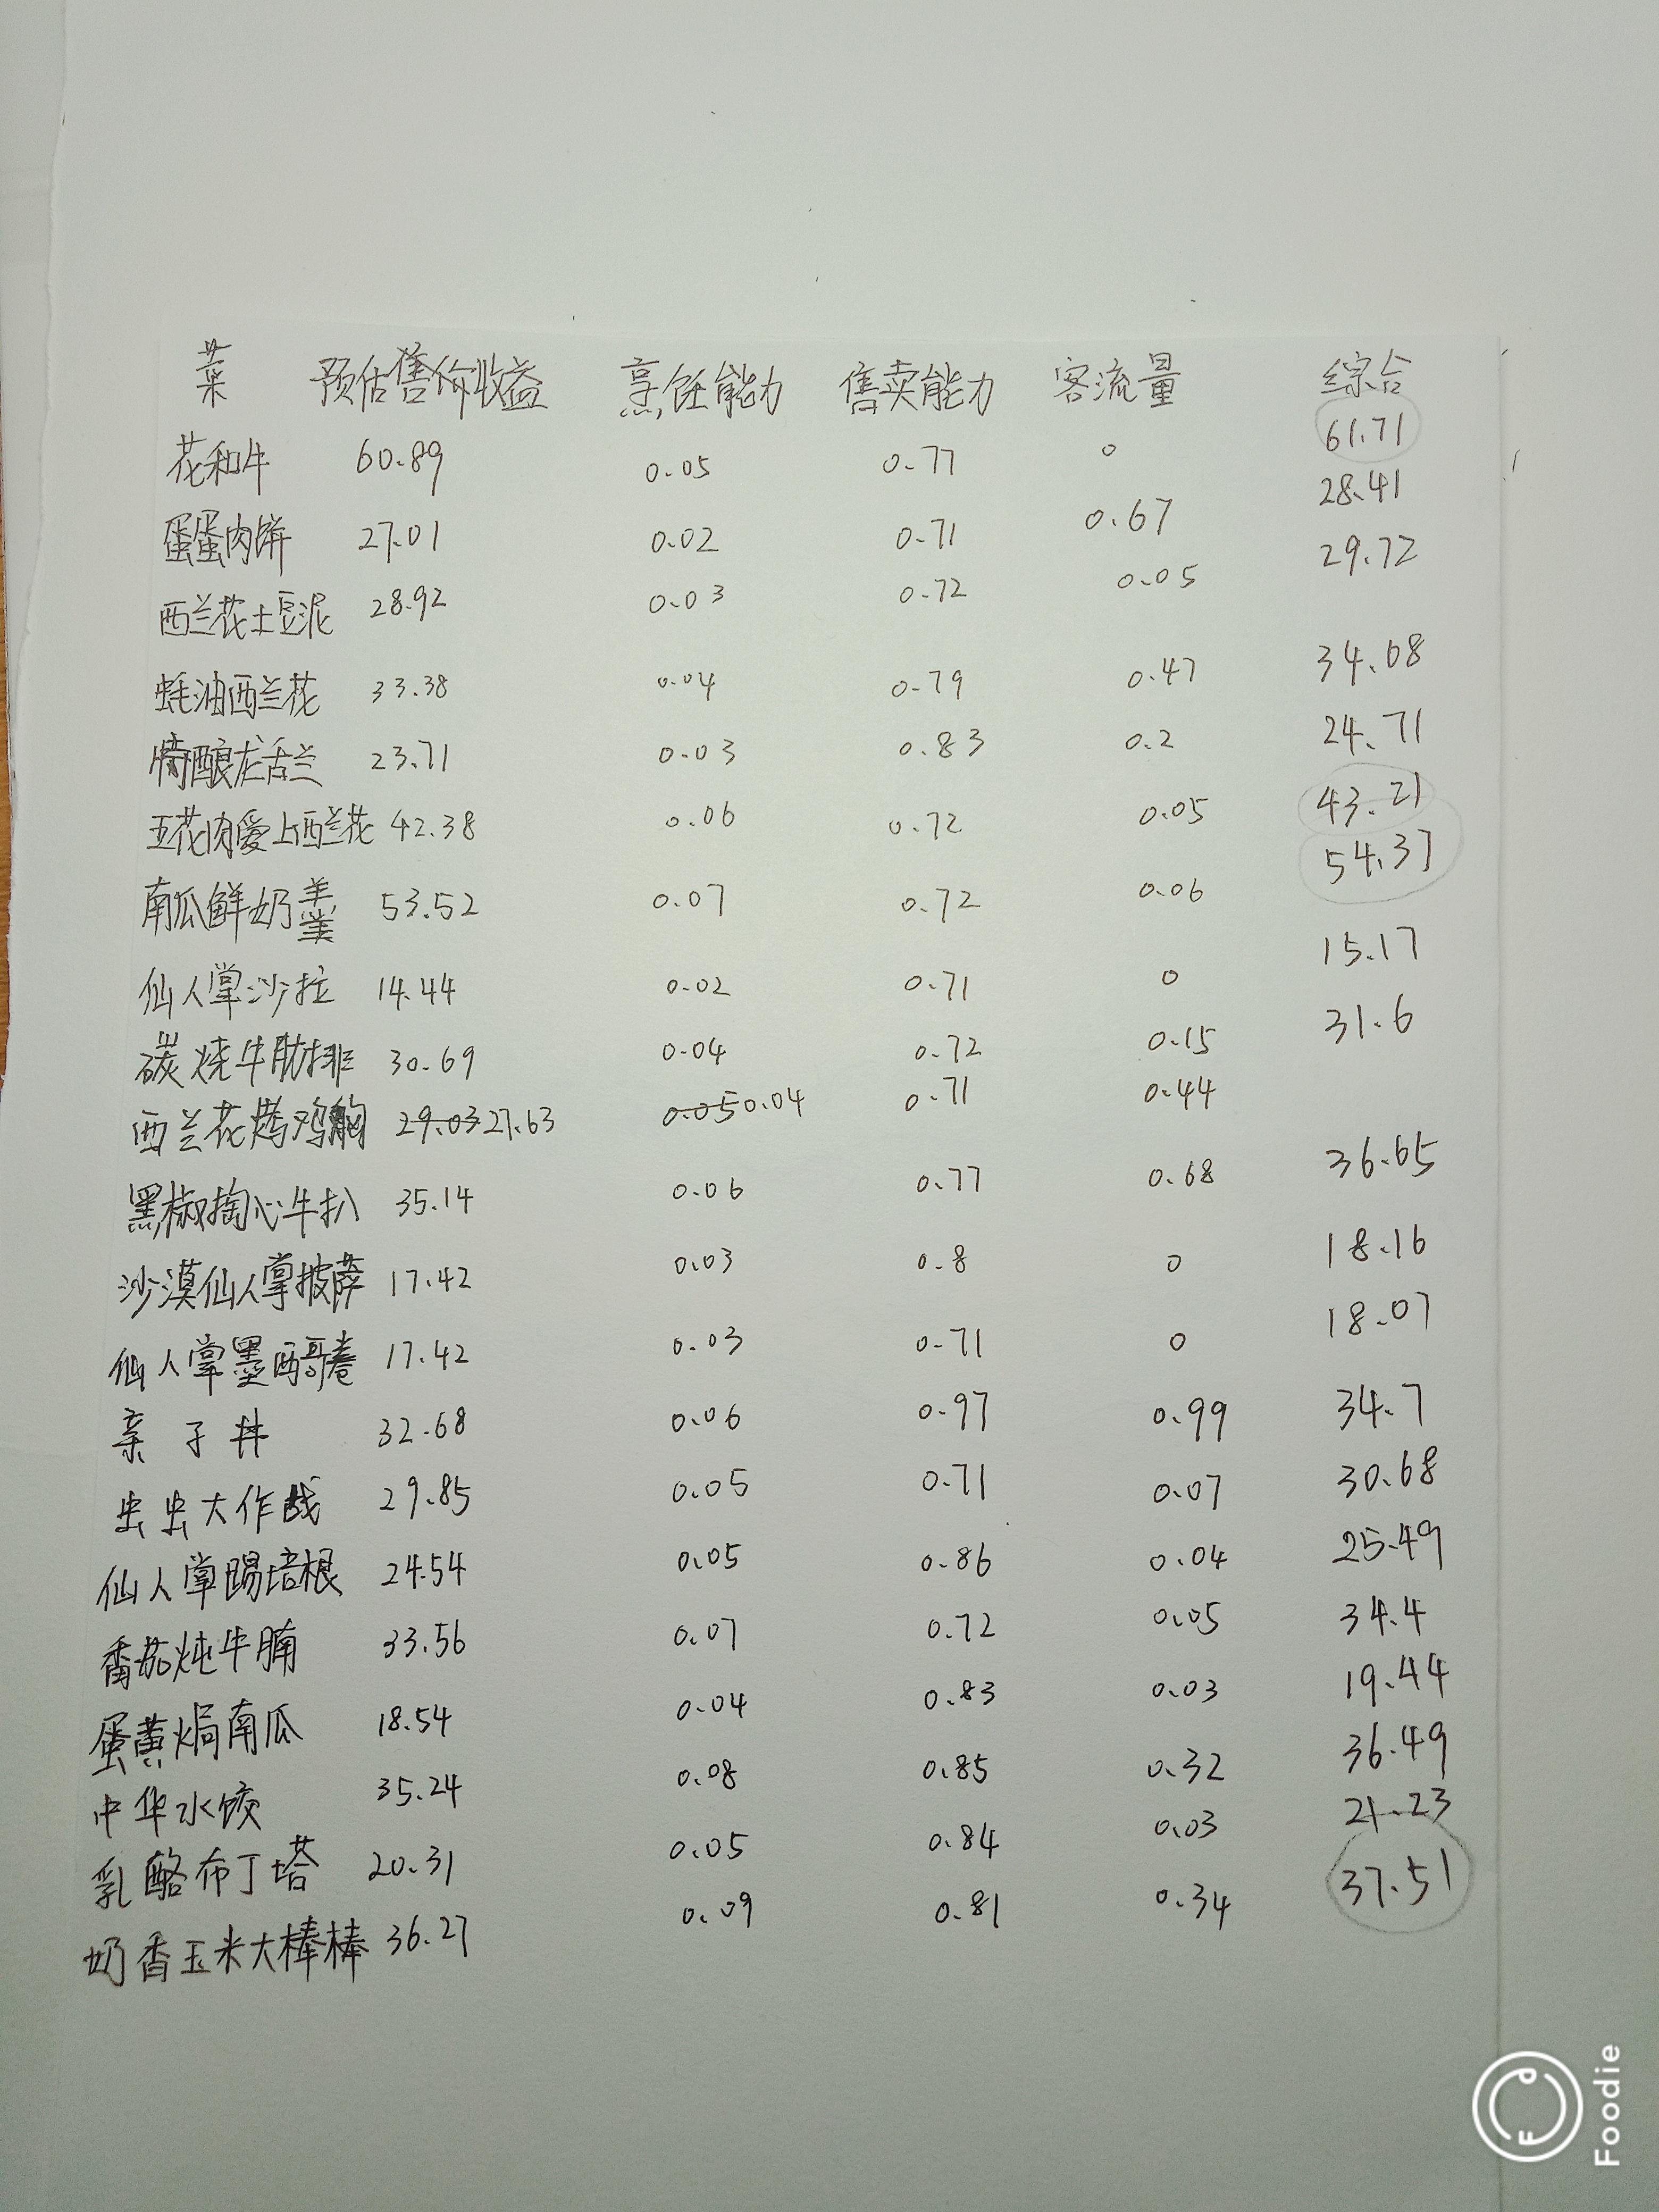 菜 预估售价收益 烹饪能力 售卖能力 客流量 综合
花和牛 60.89 0.05 0.77 0 61.71
蛋蛋肉饼 27.01 0.02 0.71 0.67 28.41
西兰花土豆泥 28.92 0.03 0.72 0.05 29.72
蚝油西兰花 33.38 0.04 0.79 0.47 34.68
特酿龙舌兰 23.71 0.03 0.83 0.2 24.71
五花肉爱上西兰花 42.38 0.06 0.72 0.05 43.21
南瓜鲜奶羹 53.52 0.07 0.72 0.06 54.37
仙人掌沙拉 14.44 0.02 0.71 0 15.17
碳烧牛肋排 30.69 0.04 0.72 0.15 31.6
西兰花烤鸡胸 29.03 27.63 0.05 0.04 0.71 0.44
黑椒掏心牛扒 35.14 0.06 0.77 0.68 36.65
沙漠仙人掌披萨 17.42 0.03 0.8 0 18.16
仙人掌墨西哥卷 17.42 0.03 0.71 0 18.07
亲子丼 32.68 0.06 0.97 0.99 34.7
虫虫大作战 29.85 0.05 0.71 0.07 30.68
仙人掌踢培根 24.54 0.05 0.86 0.04 25.49
番茄炖牛腩 33.56 0.07 0.72 0.05 34.4
蛋黄焗南瓜 18.54 0.04 0.83 0.03 19.44
中华水饺 35.24 0.08 0.85 0.32 36.49
乳酪布丁塔 20.31 0.05 0.84 0.03 21.23
奶香玉米大棒棒 36.27 0.09 0.81 0.34 37.51
Foodie